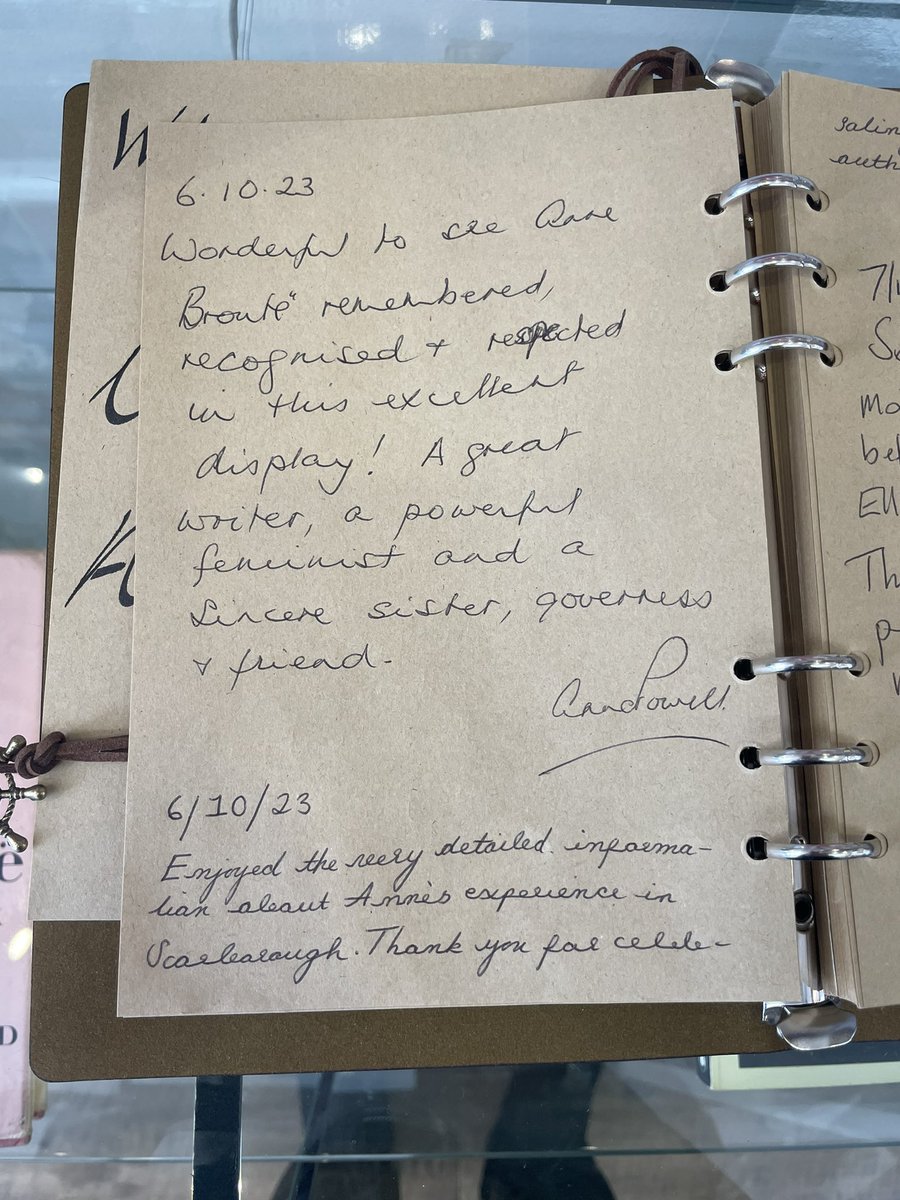 6.10.23
Wonderful to see Anne
Brontë remembered,
recognised + respected
in this excellent
display! A great
writer, a powerful
feminist and a
sincere sister, governess
+ friend.
Ann Powell.
6/10/23
Enjoyed the very detailed informa-
tion about Anne's experience in
Scarborough. Thank you for celeb-